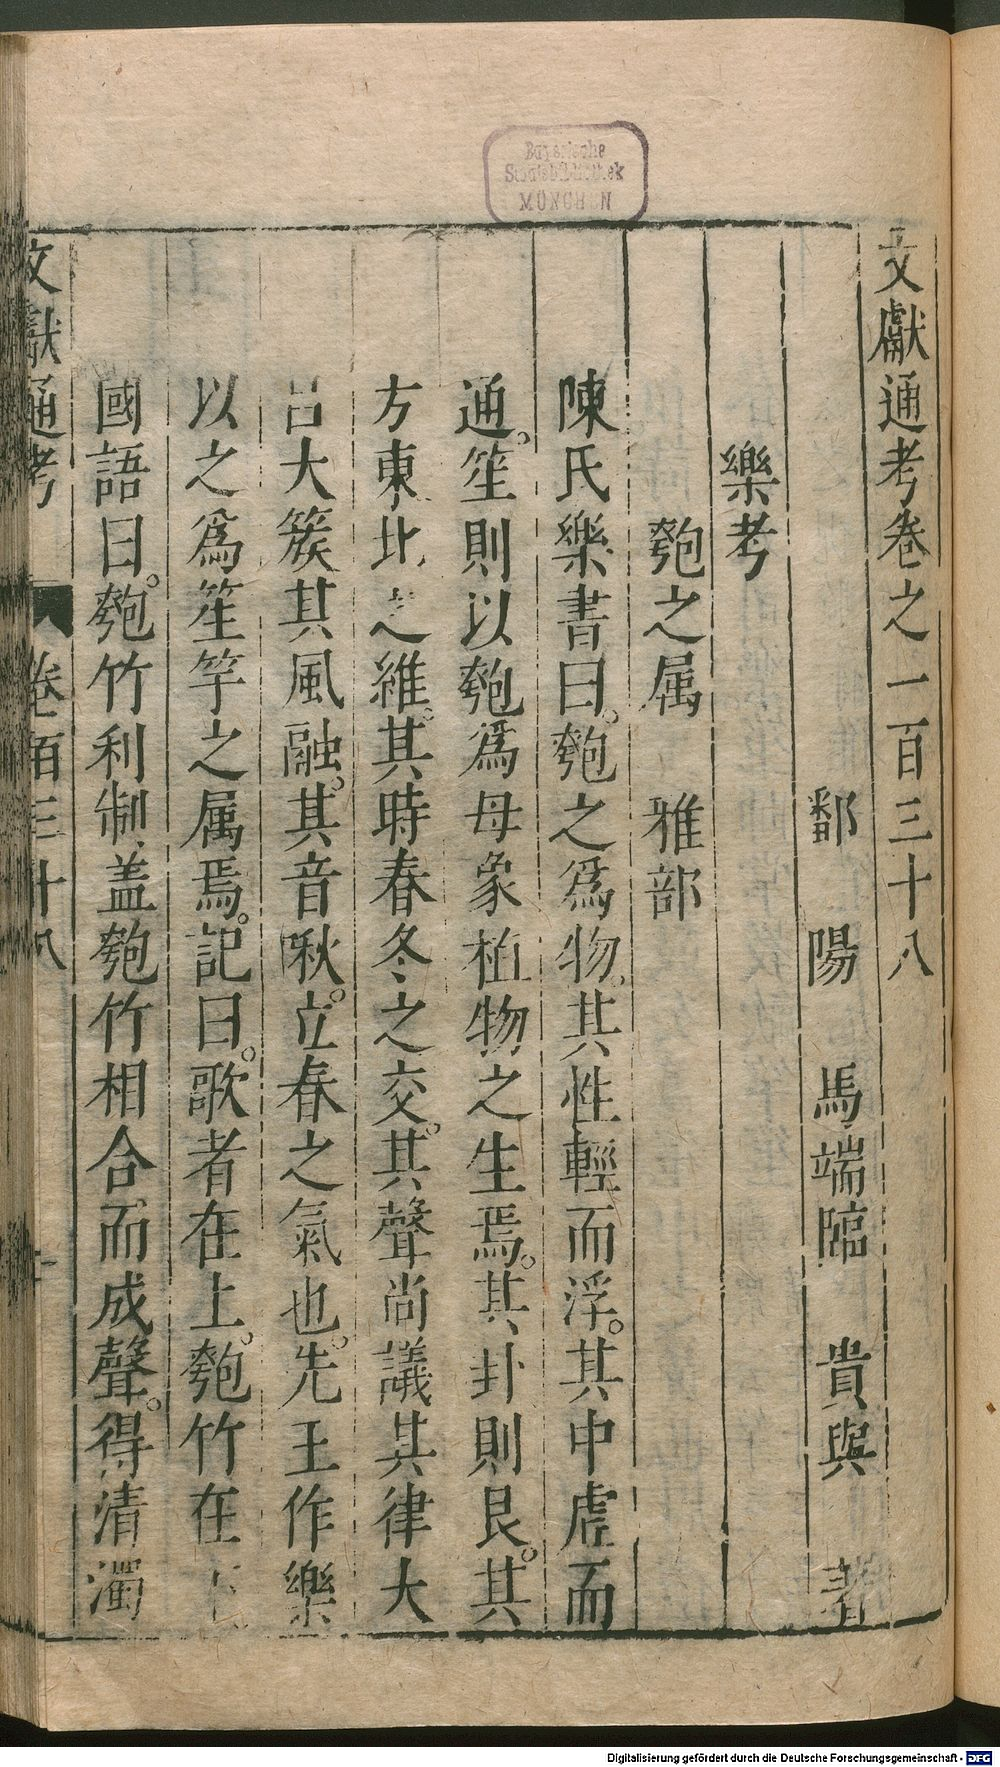 Bayerische
Staatsbibliothek
MÜNCHEN
文獻通考卷之一百三十八
鄱陽 馬端臨 貴與 著
樂考
匏之属 雅部
陳氏樂書曰。匏之爲物。其性輕而浮。其中虗而
通。笙則以匏爲母象植物之生焉。其卦則艮。其
方東北之維。其時春冬之交。其聲尚議其律大
呂大簇其風融。其音啾。立春之氣也。先王作樂
以之爲笙竽之属焉。記曰。歌者在上。匏竹在下
國語曰。匏竹利制盖匏竹相合而成聲。得清濁
文獻通考 卷一百三十八 一
Digitalisierung gefördert durch die Deutsche Forschungsgemeinschaft - DFG